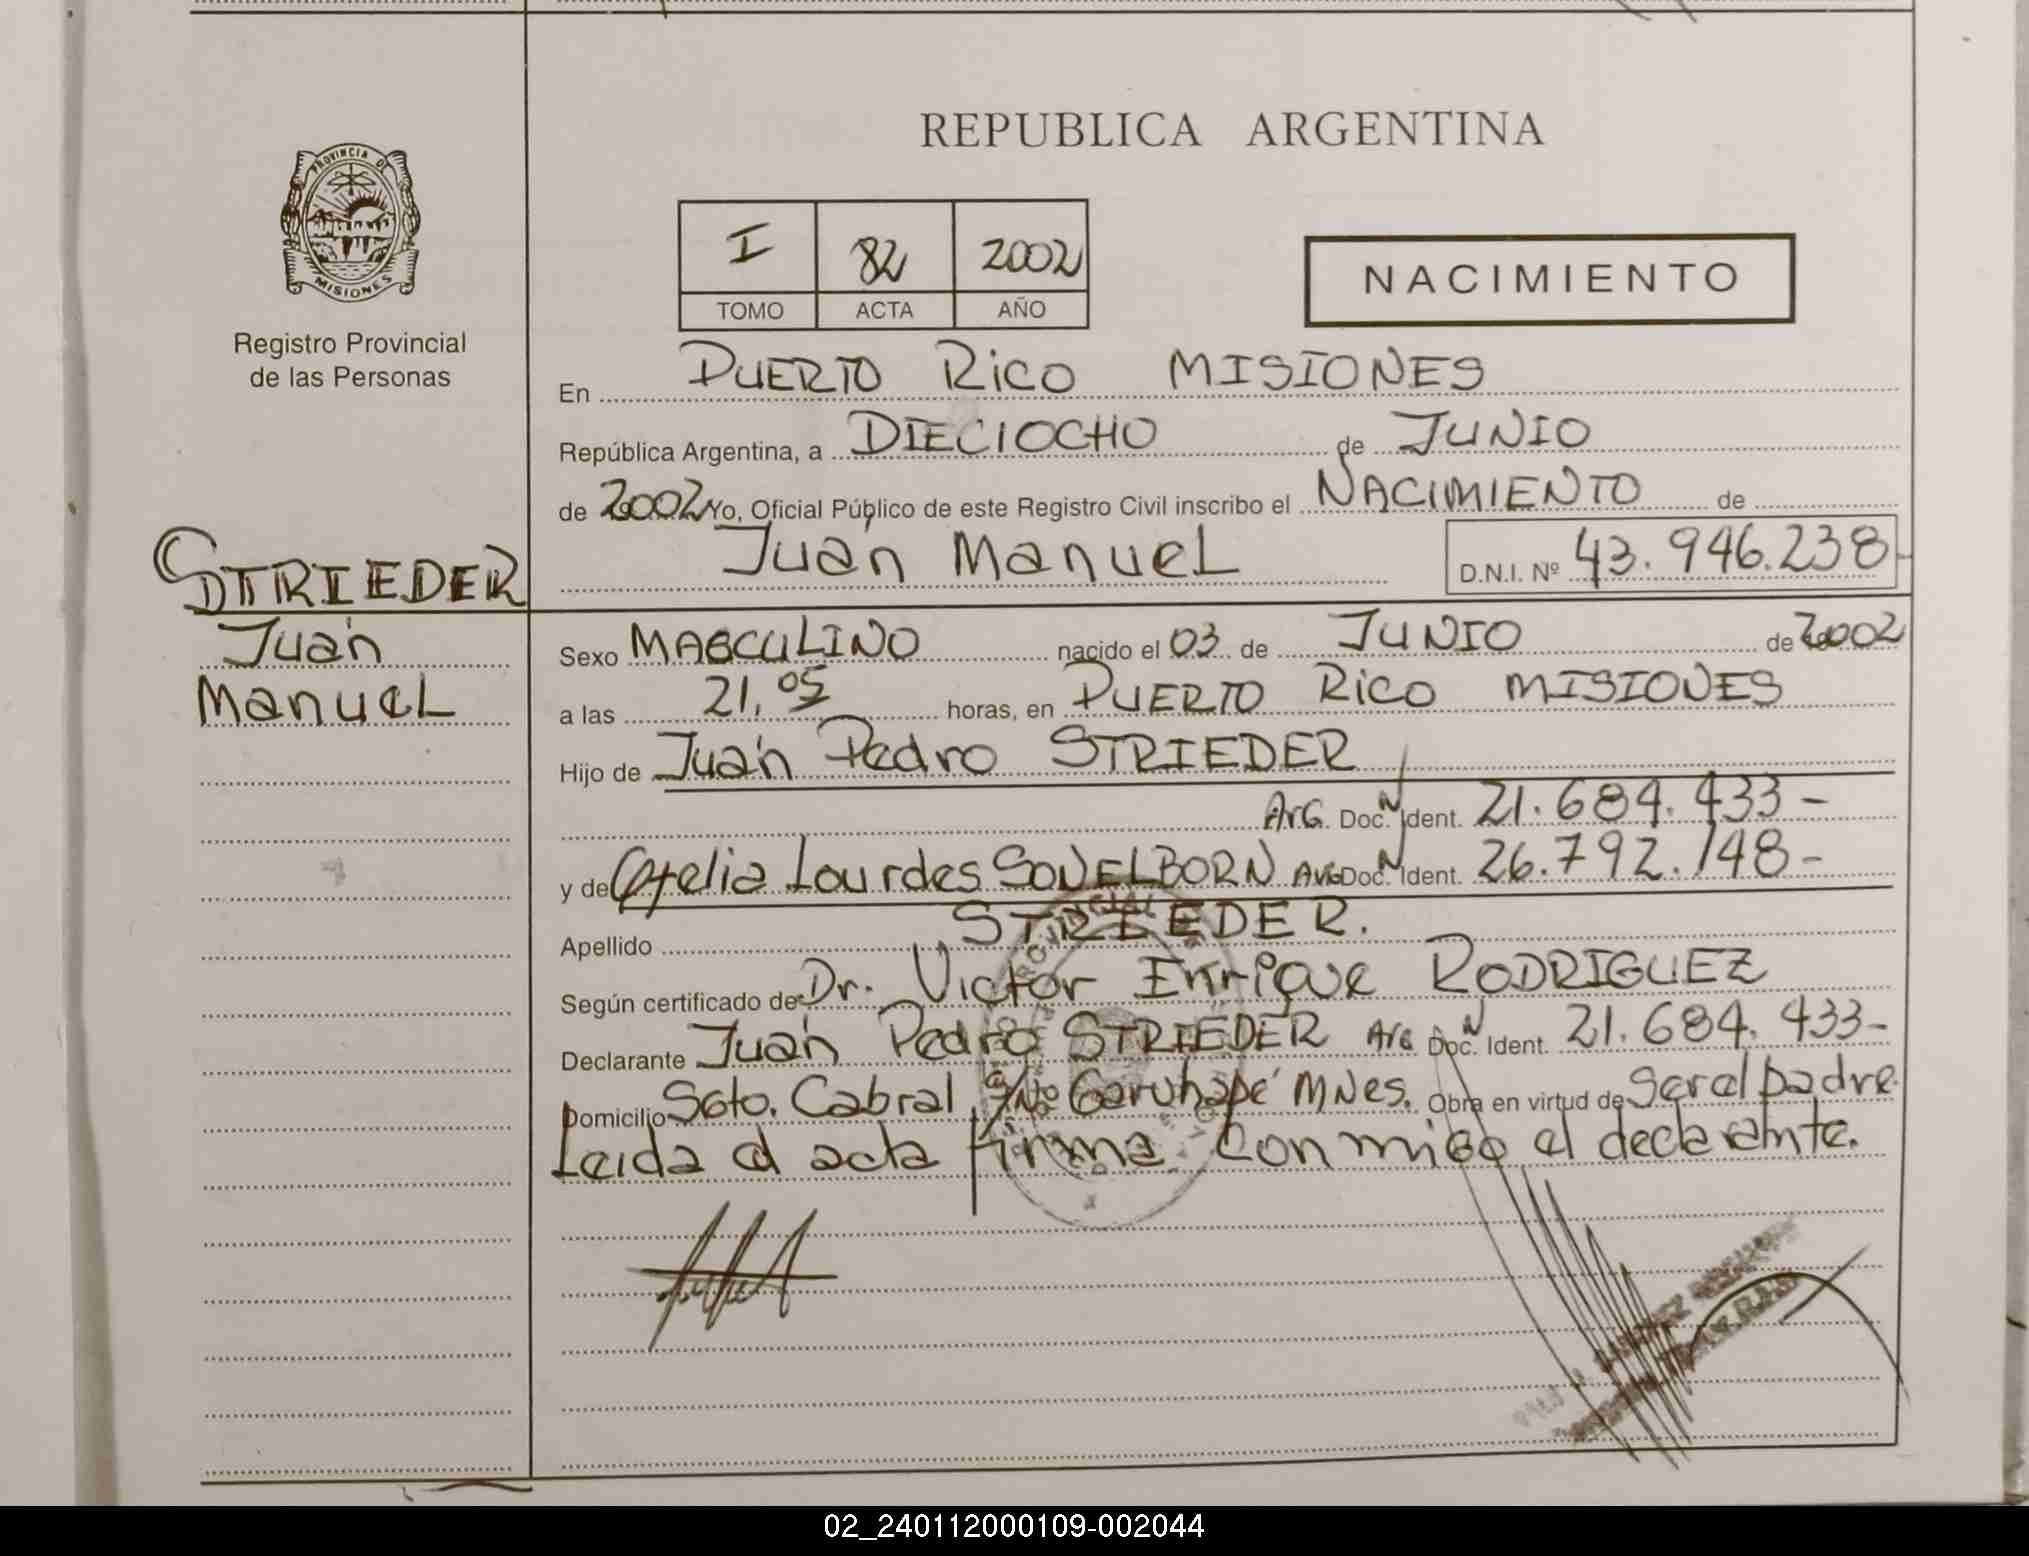 REPUBLICA ARGENTINA
PROVINCIA DE
MISIONES
Registro Provincial
de las Personas
I 82 2002
TOMO ACTA AÑO
NACIMIENTO
En PUERTO RICO MISIONES
República Argentina, a DIECIOCHO de JUNIO
de 2002 Yo, Oficial Público de este Registro Civil inscribo el NACIMIENTO de
Juan Manuel D.N.I. Nº 43.946.238-
STRIEDER
Juan
Manuel
Sexo MASCULINO nacido el 03 de JUNIO de 2002
a las 21,05 horas, en PUERTO RICO MISIONES
Hijo de Juan Pedro STRIEDER
Arg. Doc. N Ident. 21.684.433-
y de Ofelia Lourdes SONELBORN Arg Doc. N Ident. 26.792.148-
Apellido STRIEDER.
Según certificado de Dr. Victor Enrique RODRIGUEZ
Declarante Juan Pedro STRIEDER Arg Doc. N Ident. 21.684.433-
Domicilio Sgto. Cabral, S/Nº Garuhapé Mnes. Obra en virtud de Ser el padre.
Leida el acta firma conmigo el declarante.
02_240112000109-002044